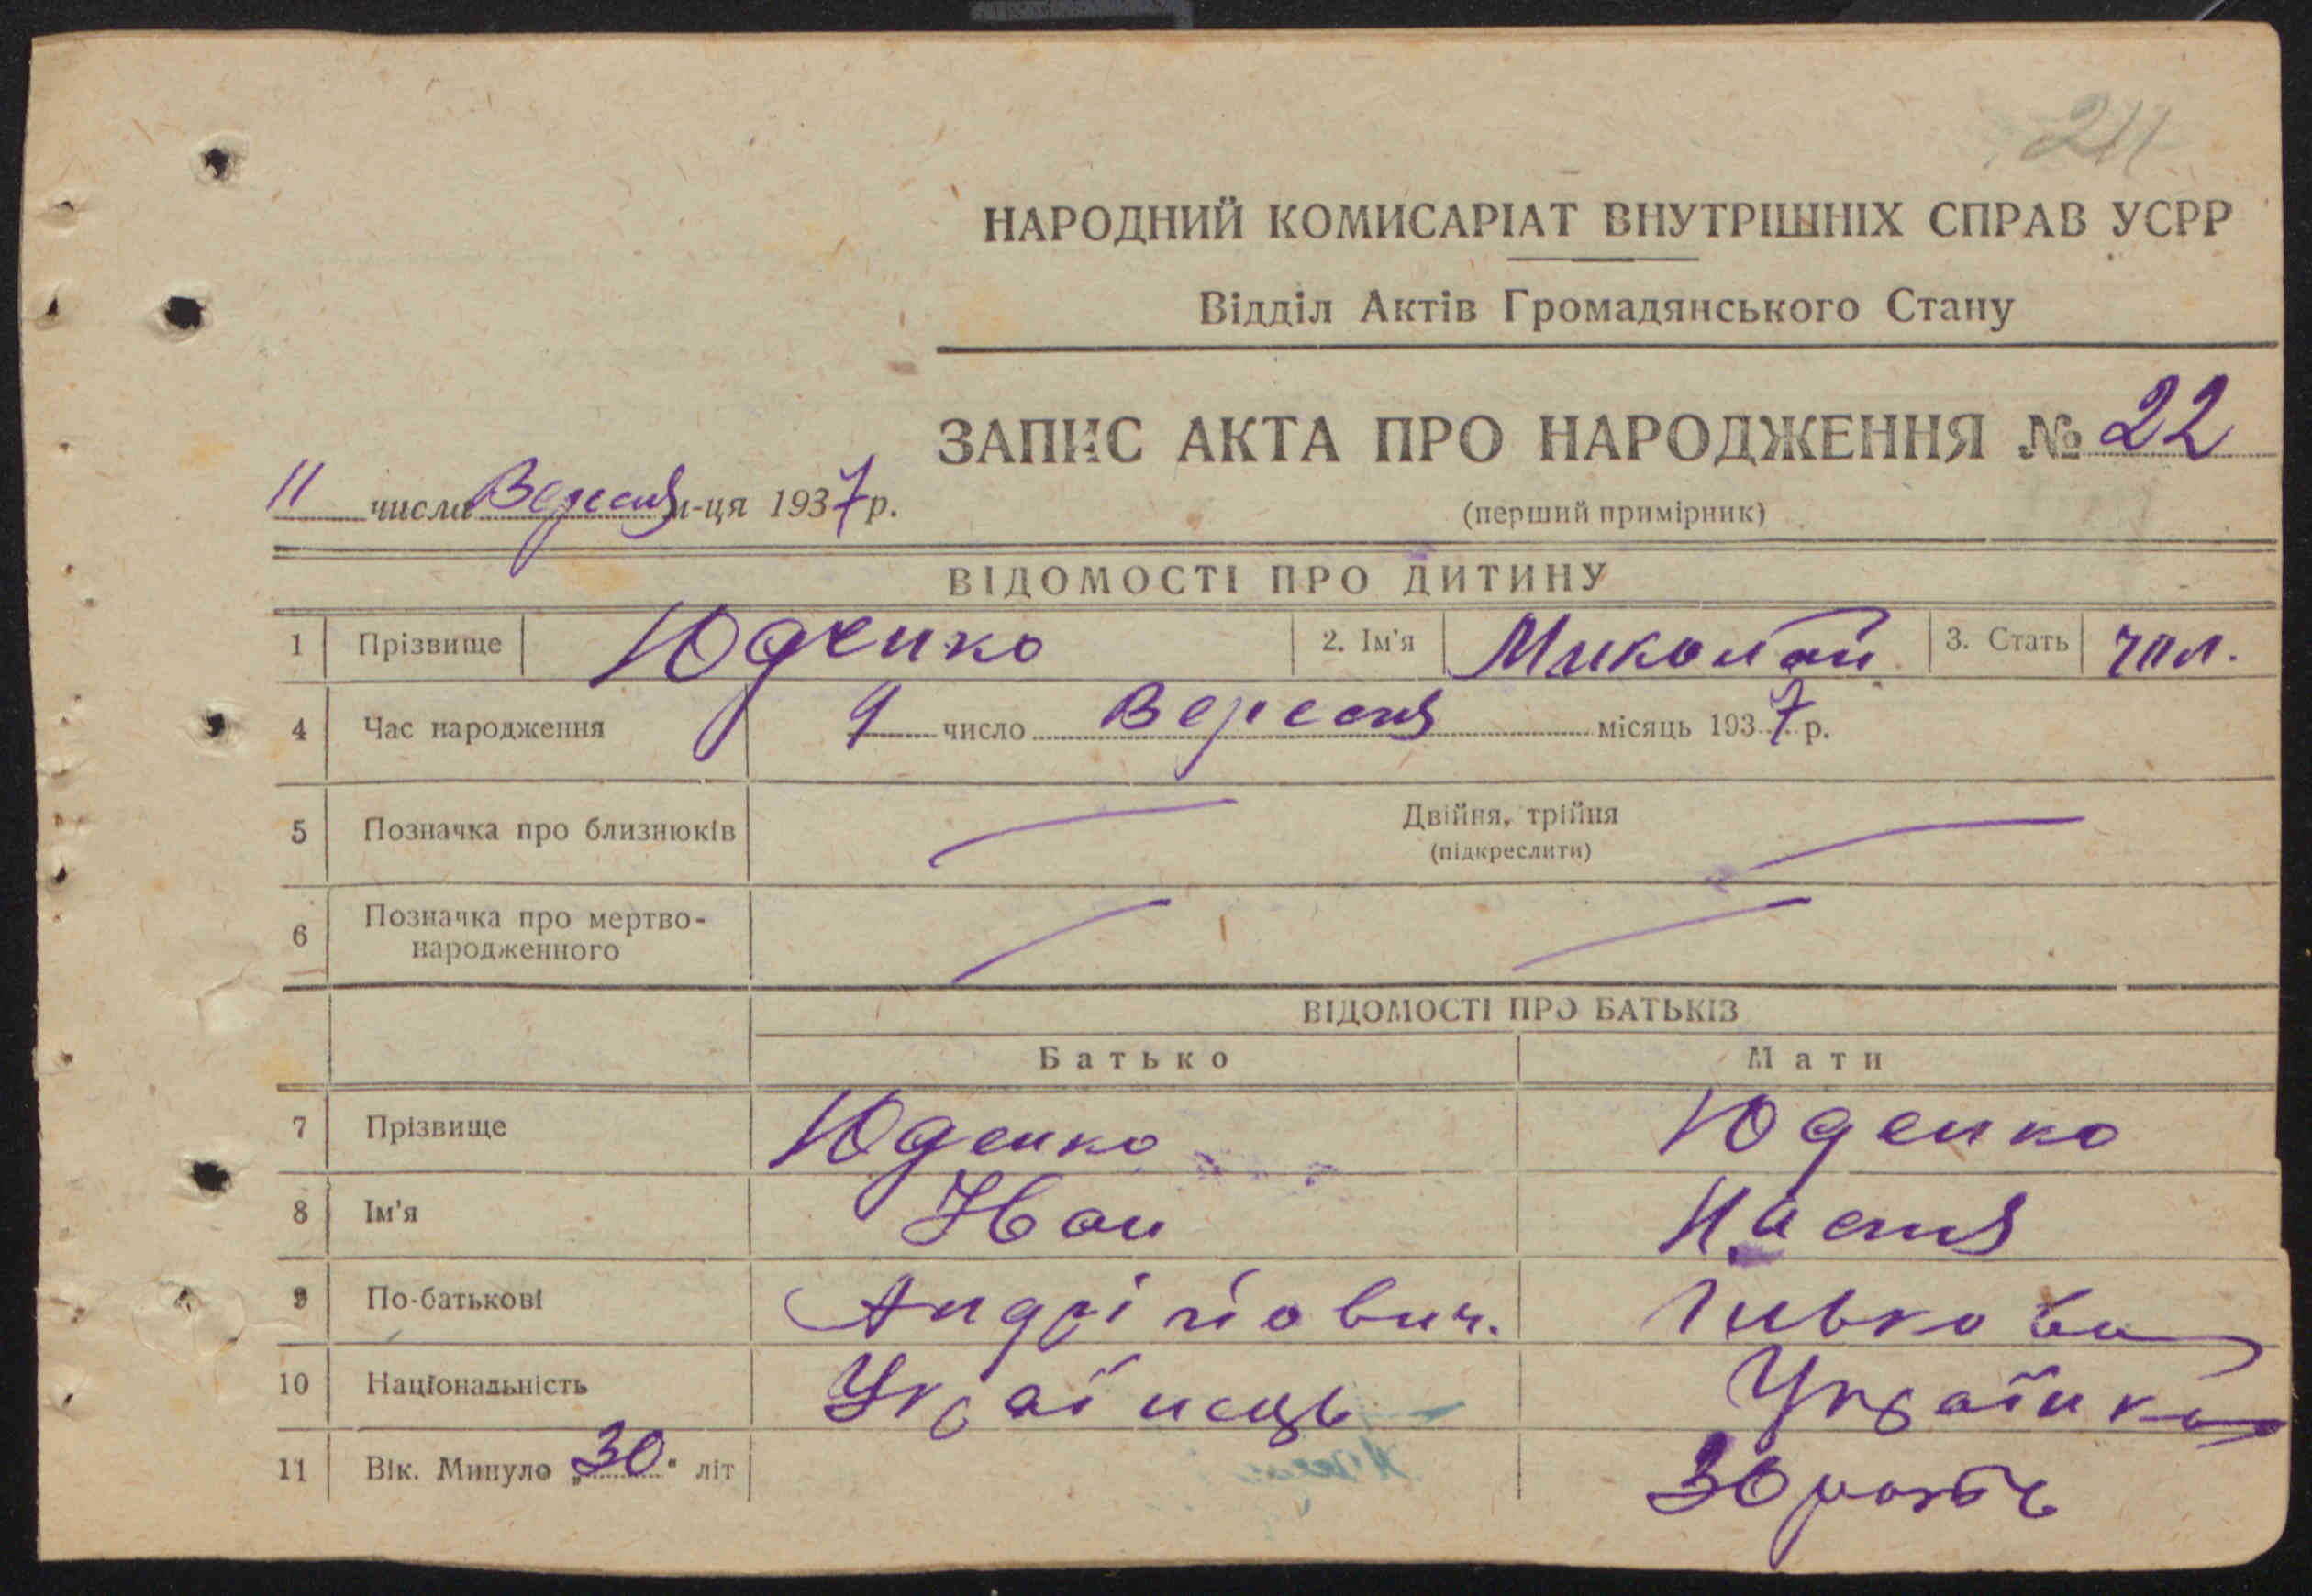 211
НАРОДНИЙ КОМИСАРІАТ ВНУТРІШНІХ СПРАВ УСРР
Відділ Актів Громадянського Стану
ЗАПИС АКТА ПРО НАРОДЖЕННЯ № 22
11 числа Вересня м-ця 1937 р.
(перший примірник)
ВІДОМОСТІ ПРО ДИТИНУ
1 Прізвище Юденко 2. Ім'я Миколай 3. Стать чол.
4 Час народження 9 число Вересня місяць 1937 р.
5 Позначка про близнюків Двійня, трійня
(підкреслити)
6 Позначка про мертво-
народженного
ВІДОМОСТІ ПРО БАТЬКІВ
Батько Мати
7 Прізвище Юденко Юденко
8 Ім'я Иван Настя
9 По-батькові Андрійович.
10 Національність Українець Українка
11 Вік. Минуло „30" літ 30